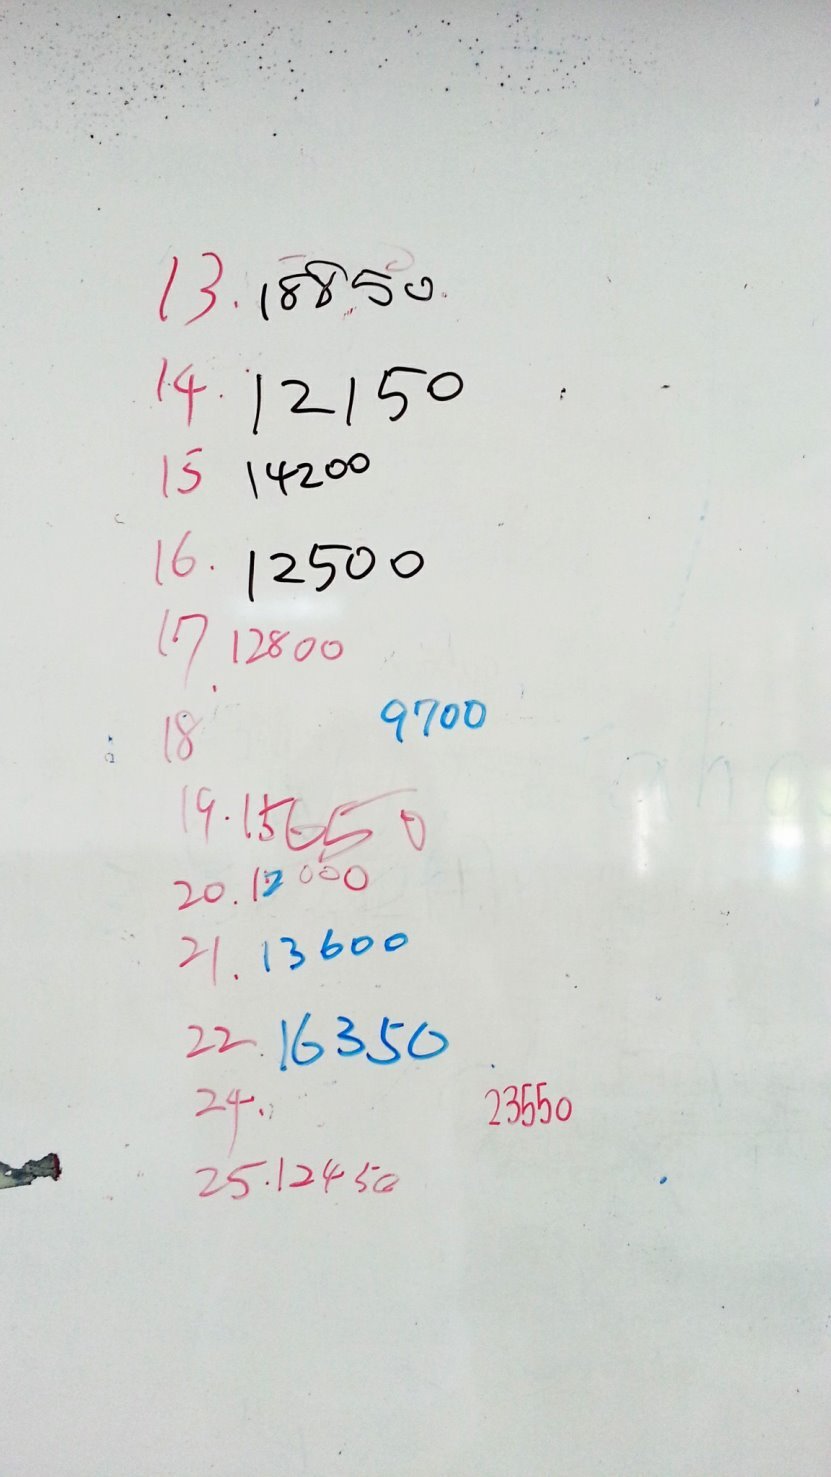 13. 18850
14. 12150
15 14200
16. 12500
17 12800
18 9700
19. 15650
20. 12000
21. 13600
22. 16350
24. 23550
25. 12450